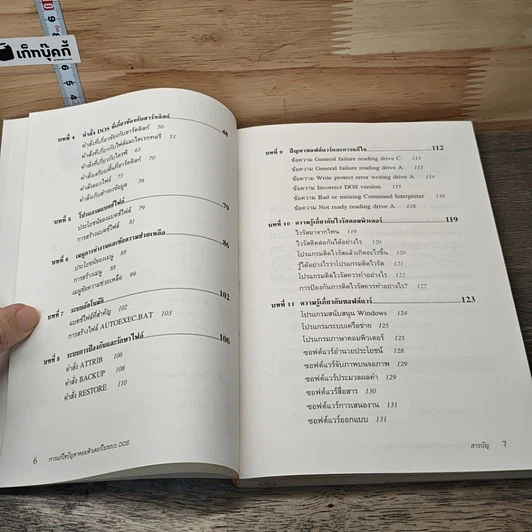 เก็ทบุ๊คกี้
บทที่ 4 คำสั่ง DOS ที่เกี่ยวข้องกับฮาร์ดดิสก์ 48
คำสั่งที่เกี่ยวข้องกับฮาร์ดดิสก์ 50
คำสั่งที่เกี่ยวกับไฟล์และไดเรกทอรี 51
คำสั่งที่เกี่ยวกับไดรฟ์ 65
คำสั่งเตรียมพื้นที่ฮาร์ดดิสก์ 70
คำสั่งลอกไฟล์ 73
คำสั่งเก็บสำรองข้อมูล 76
บทที่ 5 โปรแกรมแบตช์ไฟล์ 79
ประโยชน์ของแบตช์ไฟล์ 79
การสร้างแบตช์ไฟล์ 81
บทที่ 6 เมนูการทำงานและข้อความช่วยเหลือ 86
ประโยชน์ของเมนู 88
การสร้างเมนู 88
เมนูข้อความช่วยเหลือ 99
บทที่ 7 ระบบอัตโนมัติ 102
แบตช์ไฟล์ที่สำคัญ 102
การสร้างไฟล์ AUTOEXEC.BAT 103
บทที่ 8 ระบบการป้องกันและรักษาไฟล์ 106
คำสั่ง ATTRIB 106
คำสั่ง BACKUP 108
คำสั่ง RESTORE 110
6 การแก้ไขปัญหาคอมพิวเตอร์ในระบบ DOS
บทที่ 9 ปัญหาซอฟต์แวร์และการแก้ไข 112
ข้อความ General failure reading drive C 113
ข้อความ General failure reading drive A 113
ข้อความ Write protect error writing drive A 114
ข้อความ Incorrect DOS version 115
ข้อความ Bad or missing Command Interpreter 116
ข้อความ Not ready reading drive A 118
บทที่ 10 ความรู้เกี่ยวกับไวรัสคอมพิวเตอร์ 119
ไวรัสมาจากไหน 119
ไวรัสติดต่อกันได้อย่างไร 120
โปรแกรมติดไวรัสแล้วเกิดอะไรขึ้น 120
รู้ได้อย่างไรว่าโปรแกรมติดไวรัส 121
โปรแกรมติดไวรัสควรทำอย่างไร 121
การป้องกันการติดไวรัสควรทำอย่างไร? 122
บทที่ 11 ความรู้เกี่ยวกับซอฟต์แวร์ 123
โปรแกรมสนับสนุน Windows 124
โปรแกรมระบบเครือข่าย 125
โปรแกรมภาษาคอมพิวเตอร์ 125
ซอฟต์แวร์อำนวยประโยชน์ 128
ซอฟต์แวร์จับภาพบนจอภาพ 129
ซอฟต์แวร์ประมวลผลคำ 129
ซอฟต์แวร์สื่อสาร 130
ซอฟต์แวร์การเสนองาน 131
ซอฟต์แวร์ออกแบบ 131
สารบัญ 7